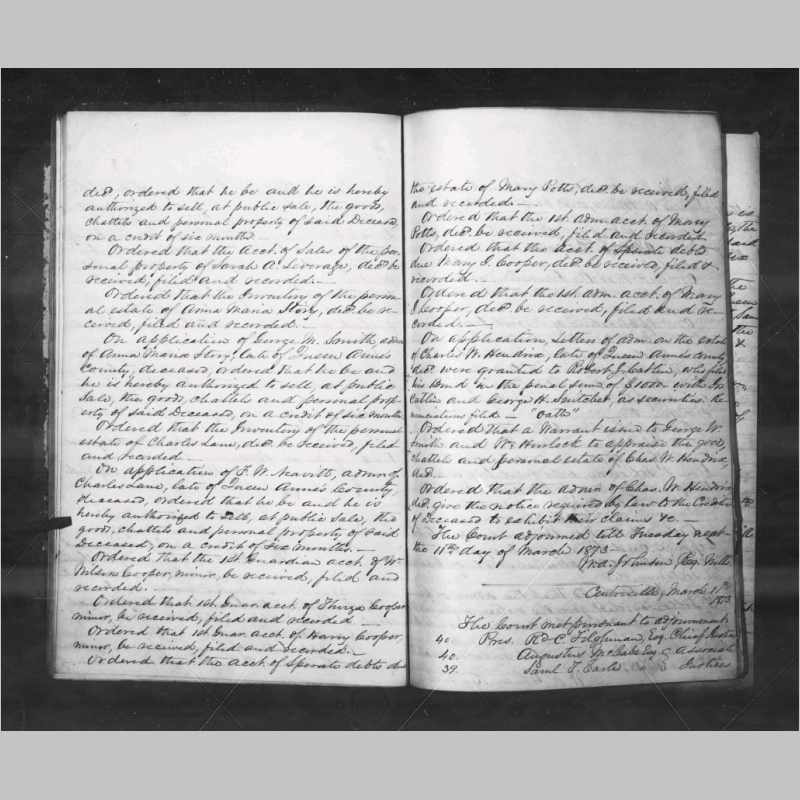 decd, ordered that he be and he is hereby
authorized to sell, at public sale, the goods,
chattels and personal property of said Deceased,
on a credit of six months. —
Ordered that the Acct. of Sales of the per-
sonal property of Sarah A. Liverage, decd. be
received, filed and recorded. —
Ordered that the Inventory of the person-
al estate of Anna Maria Story, decd. be re-
ceived, filed and recorded. —
On application of George M. Smith, admr
of Anna Maria Story, late of Queen Anne's
County, deceased, ordered that he be and
he is hereby authorized to sell, at public
Sale, the goods, chattels and personal prop-
erty of said Deceased, on a credit of six months
Ordered that the Inventory of the personal
estate of Charles Lane, decd. be received, filed
and recorded —
On application of F. W. admr of
Charles Lane, late of Queen Anne's County,
deceased, ordered that he be and he is
hereby authorized to sell, at public sale, the
goods, chattels and personal property of said
Deceased, on a credit of six months. —
Ordered that the 1st Guardian acct. of Wm
Wilson Cooper, minor, be received, filed and
recorded. —
Ordered that 1st. Guar. acct. of Thirza Cooper
minor, be received, filed and recorded —
Ordered that 1st Guar. acct. of Harry Cooper
minor, be received, filed and recorded. —
Ordered that the acct. of Sperate debts due
the estate of Mary Potts, decd. be received, filed
and recorded. —
Ordered that the 1st. adm. acct. of Mary
Potts, decd. be received, filed and recorded.
Ordered that the acct. of Sperate debts
due Mary J. Cooper, decd. be received, filed &
recorded. —
Ordered that the 1st. adm. acct. of Mary
J. Cooper, decd. be received, filed and re-
corded. —
On application, Letters of adm. on the estate
of Charles W. Hendrix, late of Queen Anne's County
decd. were granted to Robert J. who filed
his Bond in the penal sum of $1000. with
and George H. as securities. Re-
nunciations filed — "Oath"
Ordered that a Warrant issue to George W.
Smith and Wm Hurlock to appraise the goods,
chattels and personal estate of Chas. W. Hendrix,
decd. —
Ordered that the admr of Chas. W. Hendrix
decd. give the notice required by law to the Creditors
of Deceased to exhibit their claims &c. —
The Court adjourned till Tuesday next
the 11th day of March 1873 —
Johnson, Reg. Wills
Centreville, March 11th
1873
The Court met pursuant to adjournment
40. Pres. R. C. Esq. Chief Justice
40. Augustus Esq. Associate
39. Saml. T. Earle Justices